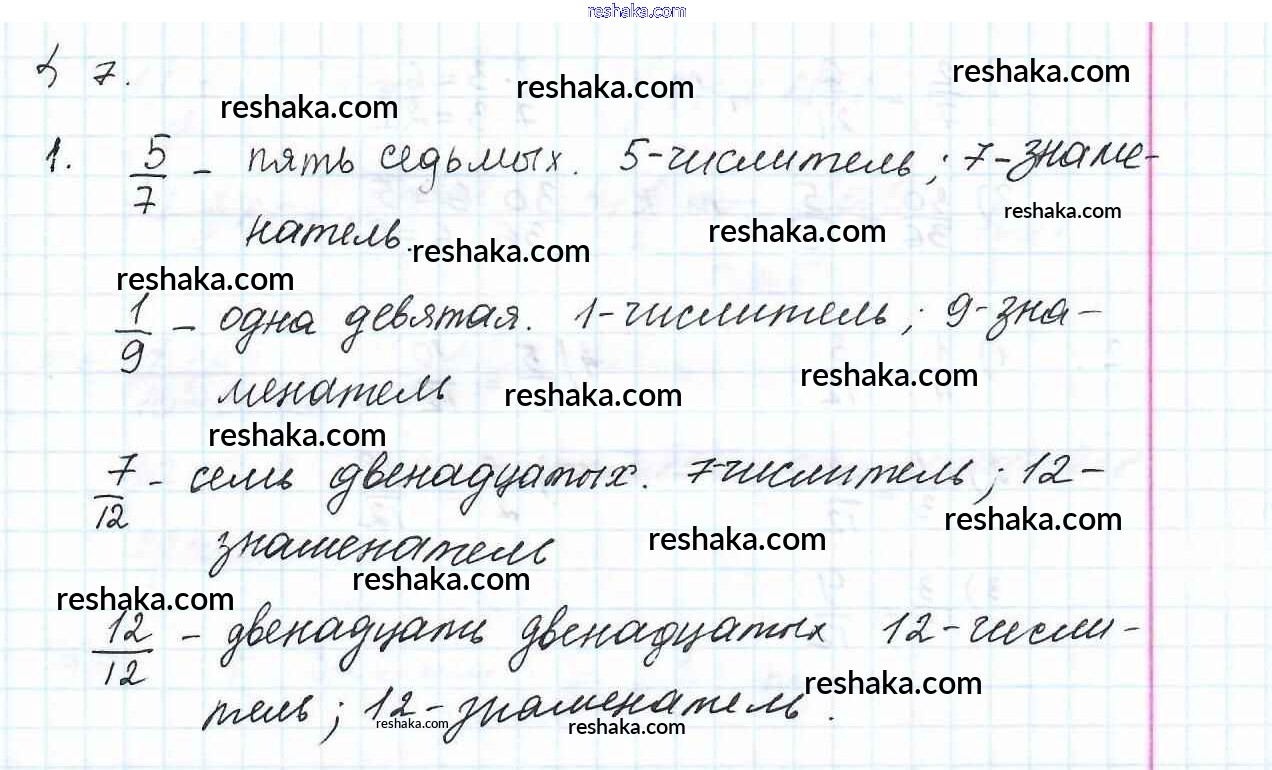 reshaka.com
§ 7.
reshaka.com reshaka.com reshaka.com
1. 5/7 - пять седьмых. 5-числитель; 7-знаме-
reshaka.com
натель.
reshaka.com reshaka.com
reshaka.com
1/9 - одна девятая. 1-числитель; 9-зна-
менатель
reshaka.com reshaka.com
reshaka.com
7/12 - семь двенадцатых. 7-числитель; 12-
reshaka.com
знаменатель
reshaka.com
reshaka.com
reshaka.com
12/12 - двенадцать двенадцатых 12-числи-
reshaka.com
тель; 12-знаменатель.
reshaka.com reshaka.com